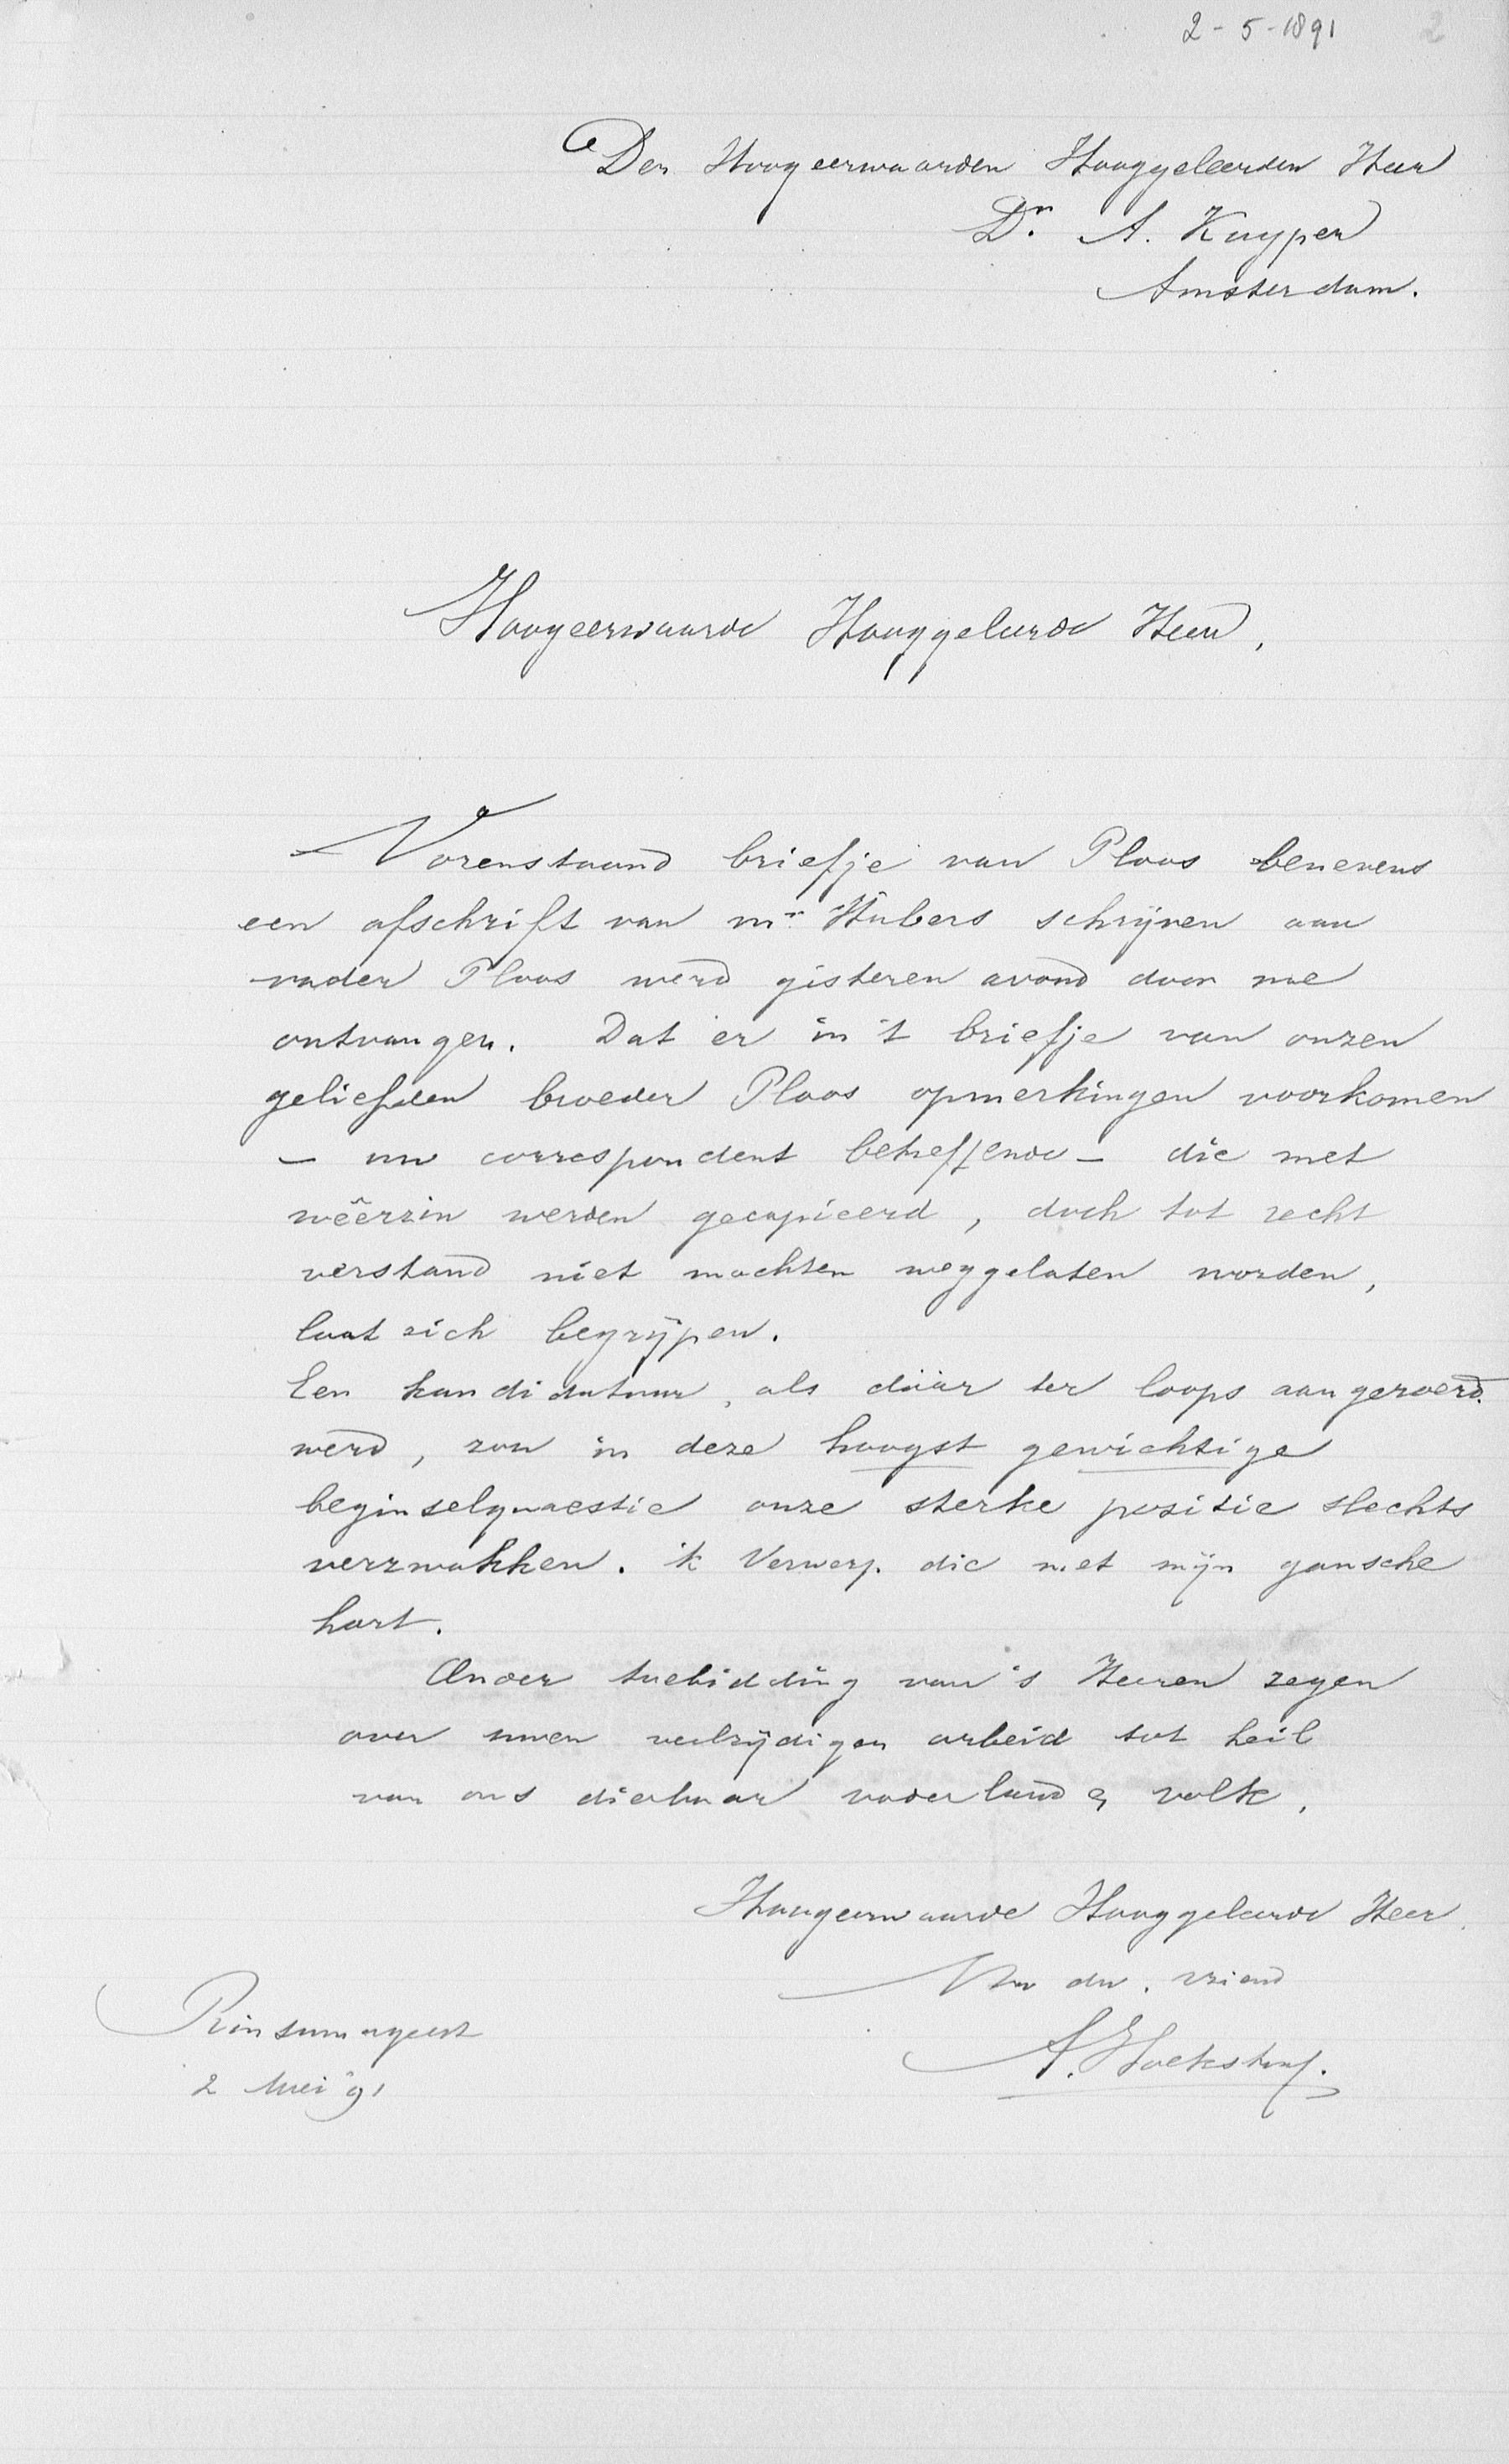 2-5-1891
2
Den Hoogeerwaarden Hooggeleerden Heer
Dr. A. Kuyper
Amsterdam.
Hoogeerwaarde Hooggeleerde Heer,
Vorenstaand briefje van Ploos benevens
een afschrift van mr. Hubers schrijven aan
vader Ploos werd gisteren avond door me
ontvangen. Dat er in 't briefje van onzen
geliefden broeder Ploos opmerkingen voorkomen
- uw correspondent betreffende - die met
weêrzin werden gecopieerd, doch tot recht
verstand niet mochten weggelaten worden,
laat zich begrijpen.
Een kandidatuur, als dáár ter loops aangeroerd
werd, zou in deze hoogst gewichtige
beginselquaestie onze sterke positie slechts
verzwakken. 'k Verwerp die met mijn gansche
hart.
Onder toebidding van 's Heeren zegen
over uwen veelzijdigen arbeid tot heil
van ons dierbaar vaderland & volk,
Hoogeerwaarde Hooggeleerde Heer,
Uw dw. vriend
A. Hoekstra.
Rinsumageest
2 Mei '91